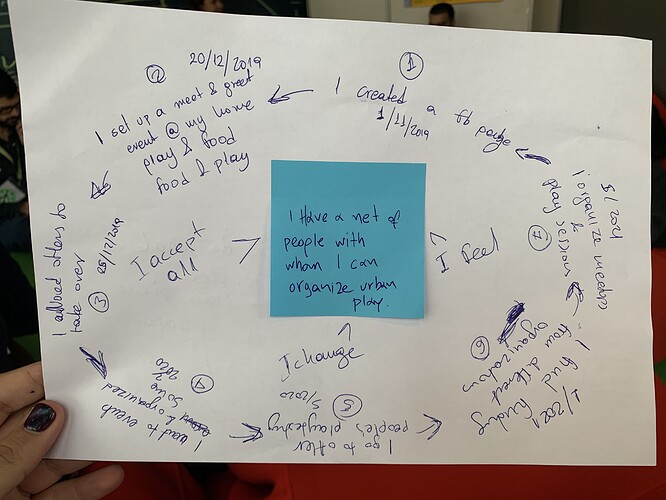 1
I created a fb page
1/11/2019
2
20/12/2019
I set up a meet & greet
event @ my home
play & food
food & play
3
I allowed others to
take over
25/12/2019
4
I went to event
& organized
some
2020
5
I go to other
people's playtesting
5/2020
6
I find funding
from different
organizations
1/2021
7
5/2021
I organize meetups
&
play sessions
I accept
all
I change
I feel
I Have a net of
people with
whom I can
organize urban
play.